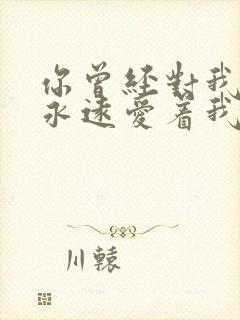 你曾經對我
永遠愛着我
川轅